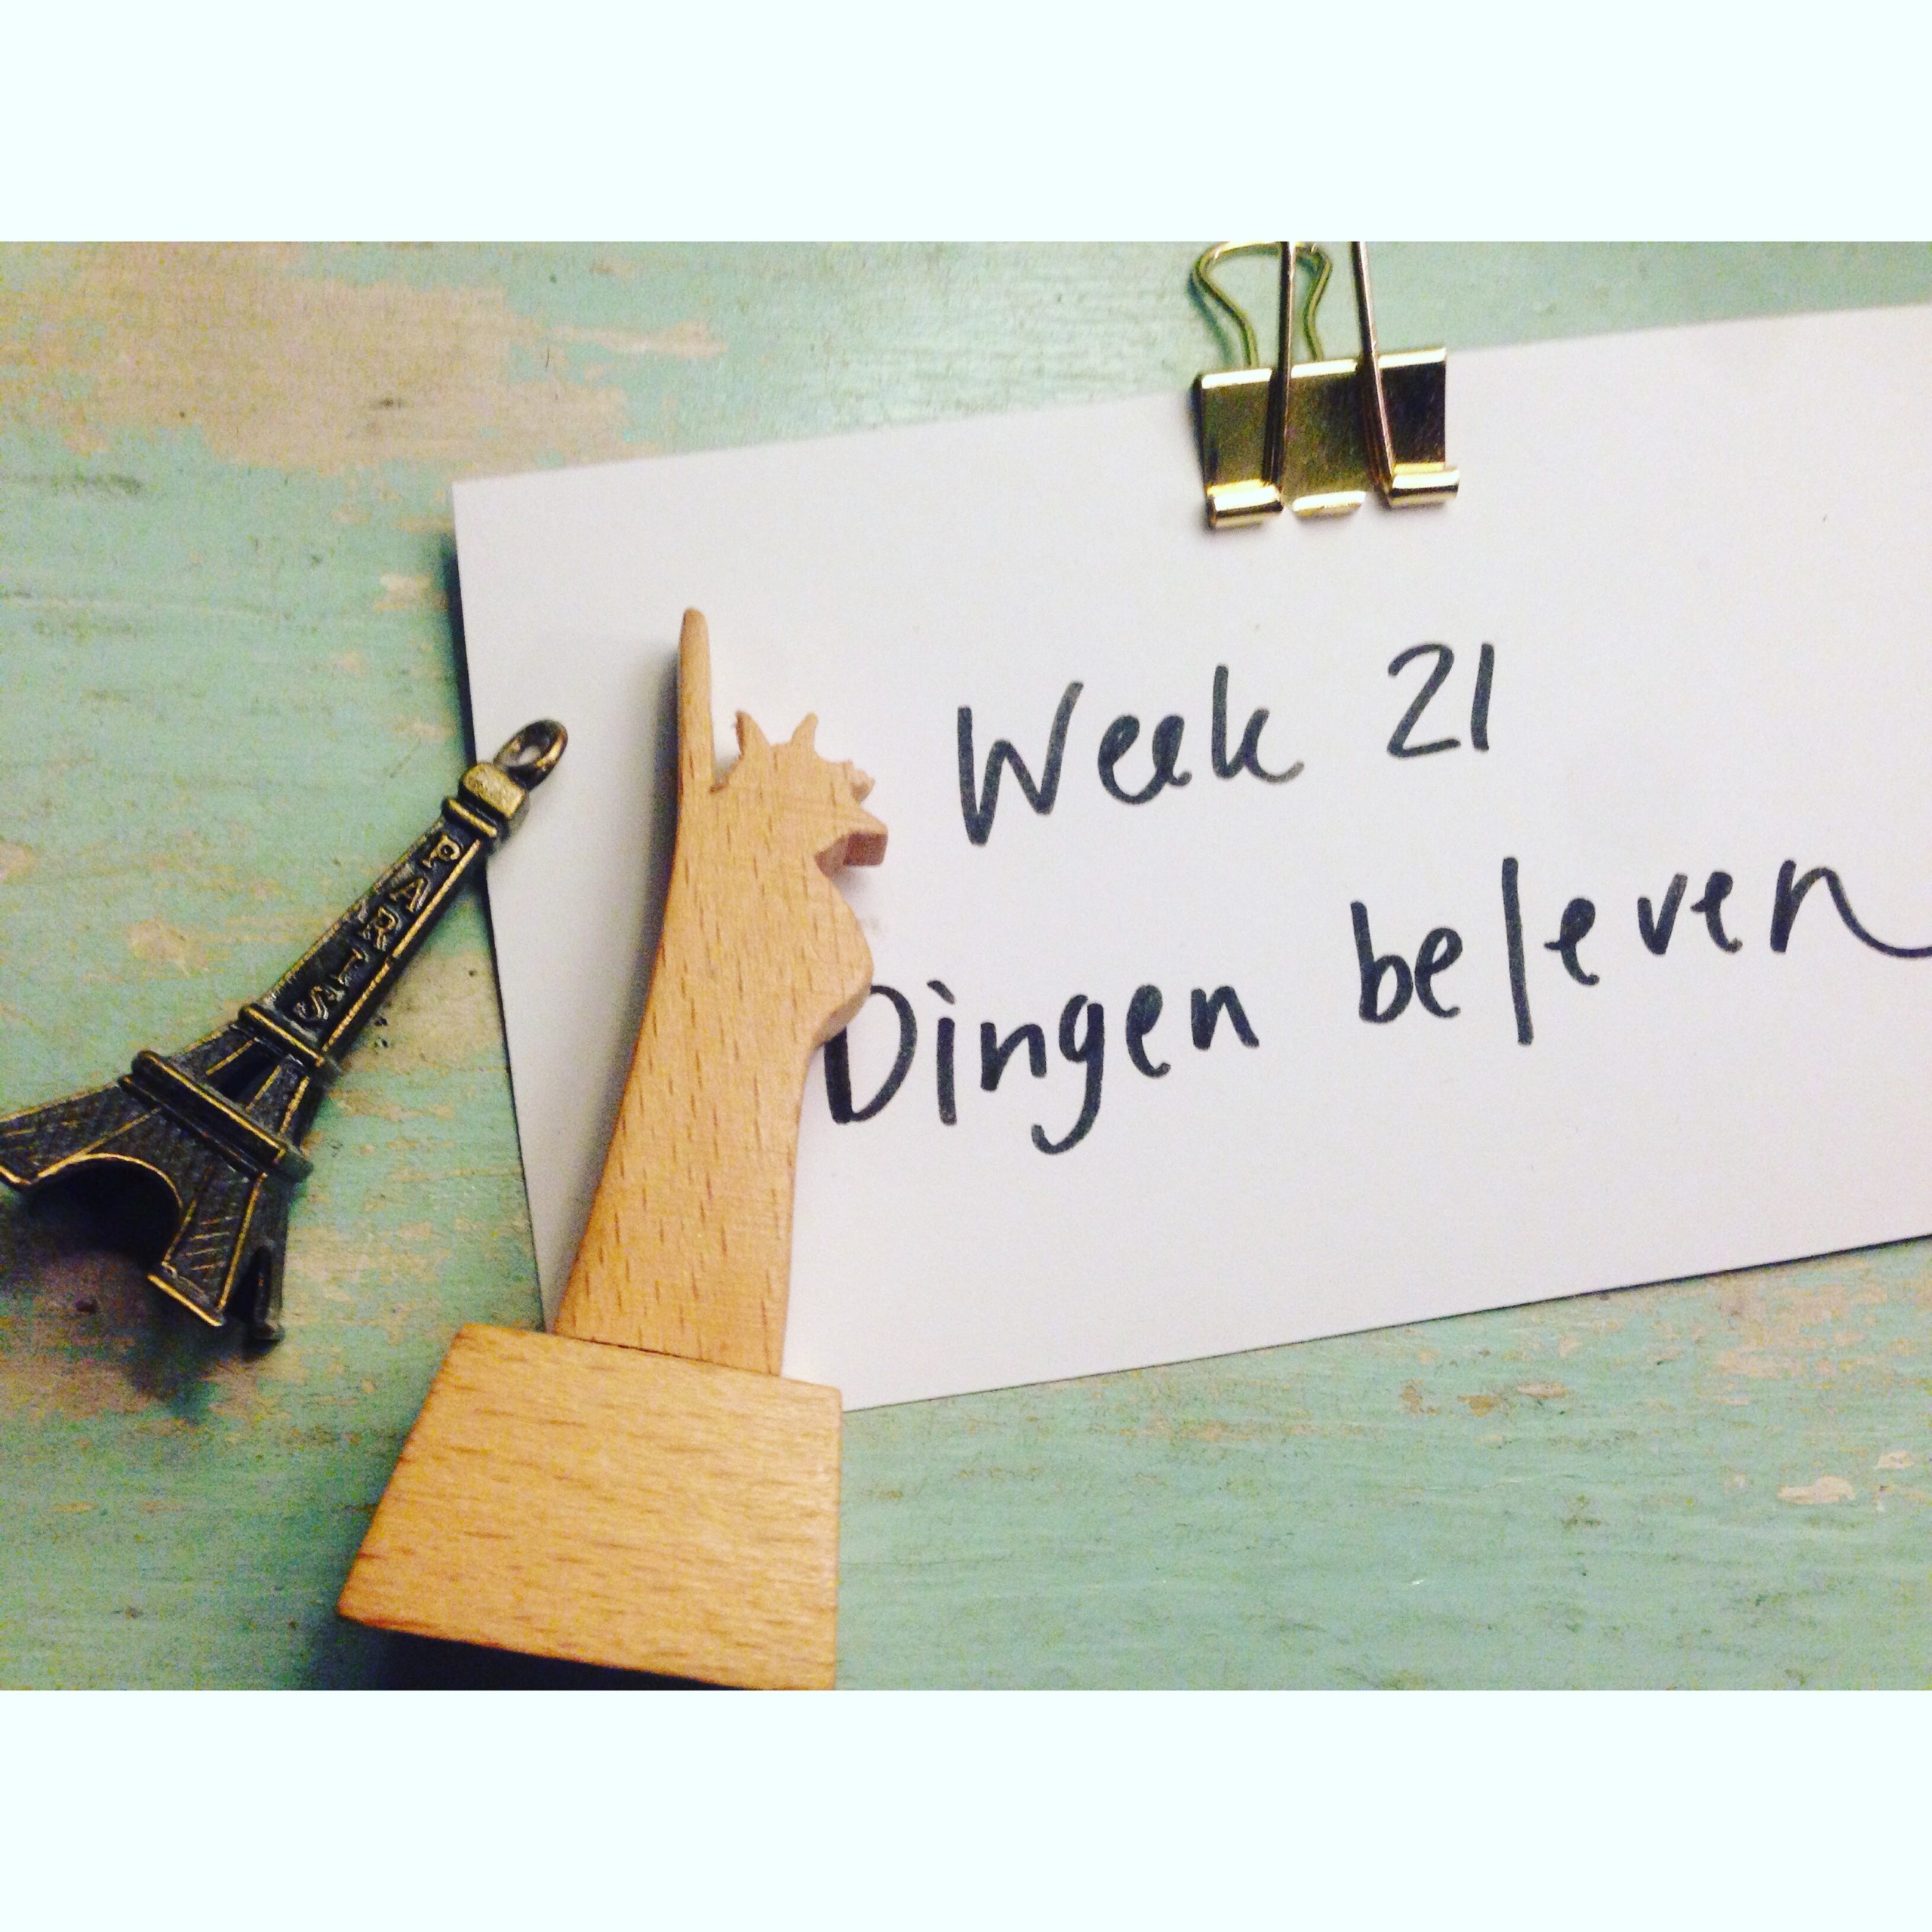 Week 21
Dingen beleven
PARIS